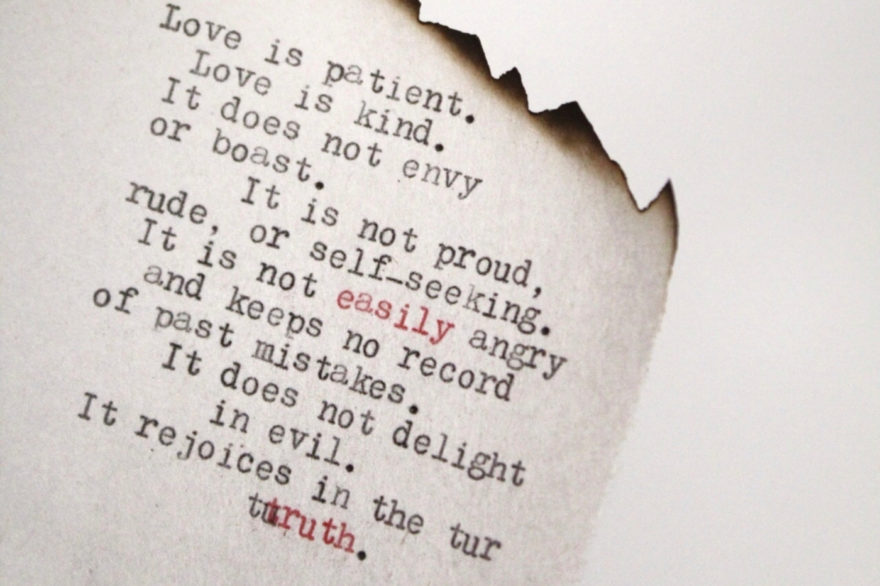 Love is patient.
Love is kind.
It does not envy
or boast.
It is not proud,
rude, or self-seeking.
It is not easily angry
and keeps no record
of past mistakes.
It does not delight
in evil.
It rejoices in the tur
turuth.